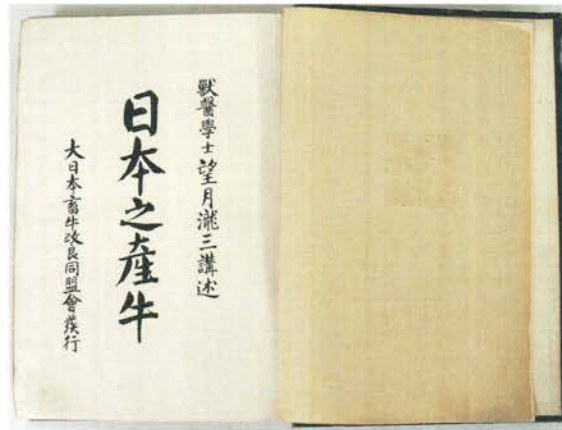 獸醫學士望月瀧三講述
日本之產牛
大日本畜牛改良同盟會發行